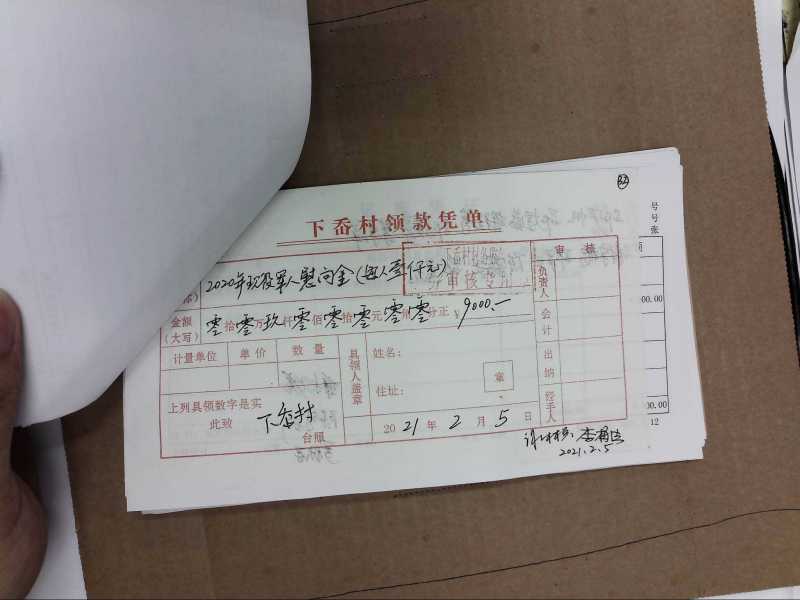 32
下岙村领款凭单
号
号
张
审核
2020年现役军人慰问金(每人壹仟元)
审核专用
负责人
金额
(大写)
零拾零万玖仟零佰零拾零元零角零分正 ¥ 9000.—
00.00
会计
计量单位 单价 数量
具领人盖章
姓名:
住址:
章
出纳
上列具领数字是实
此致 下岙村
台照
2021年2月5日
经手人
00.00
12
2021.2.5